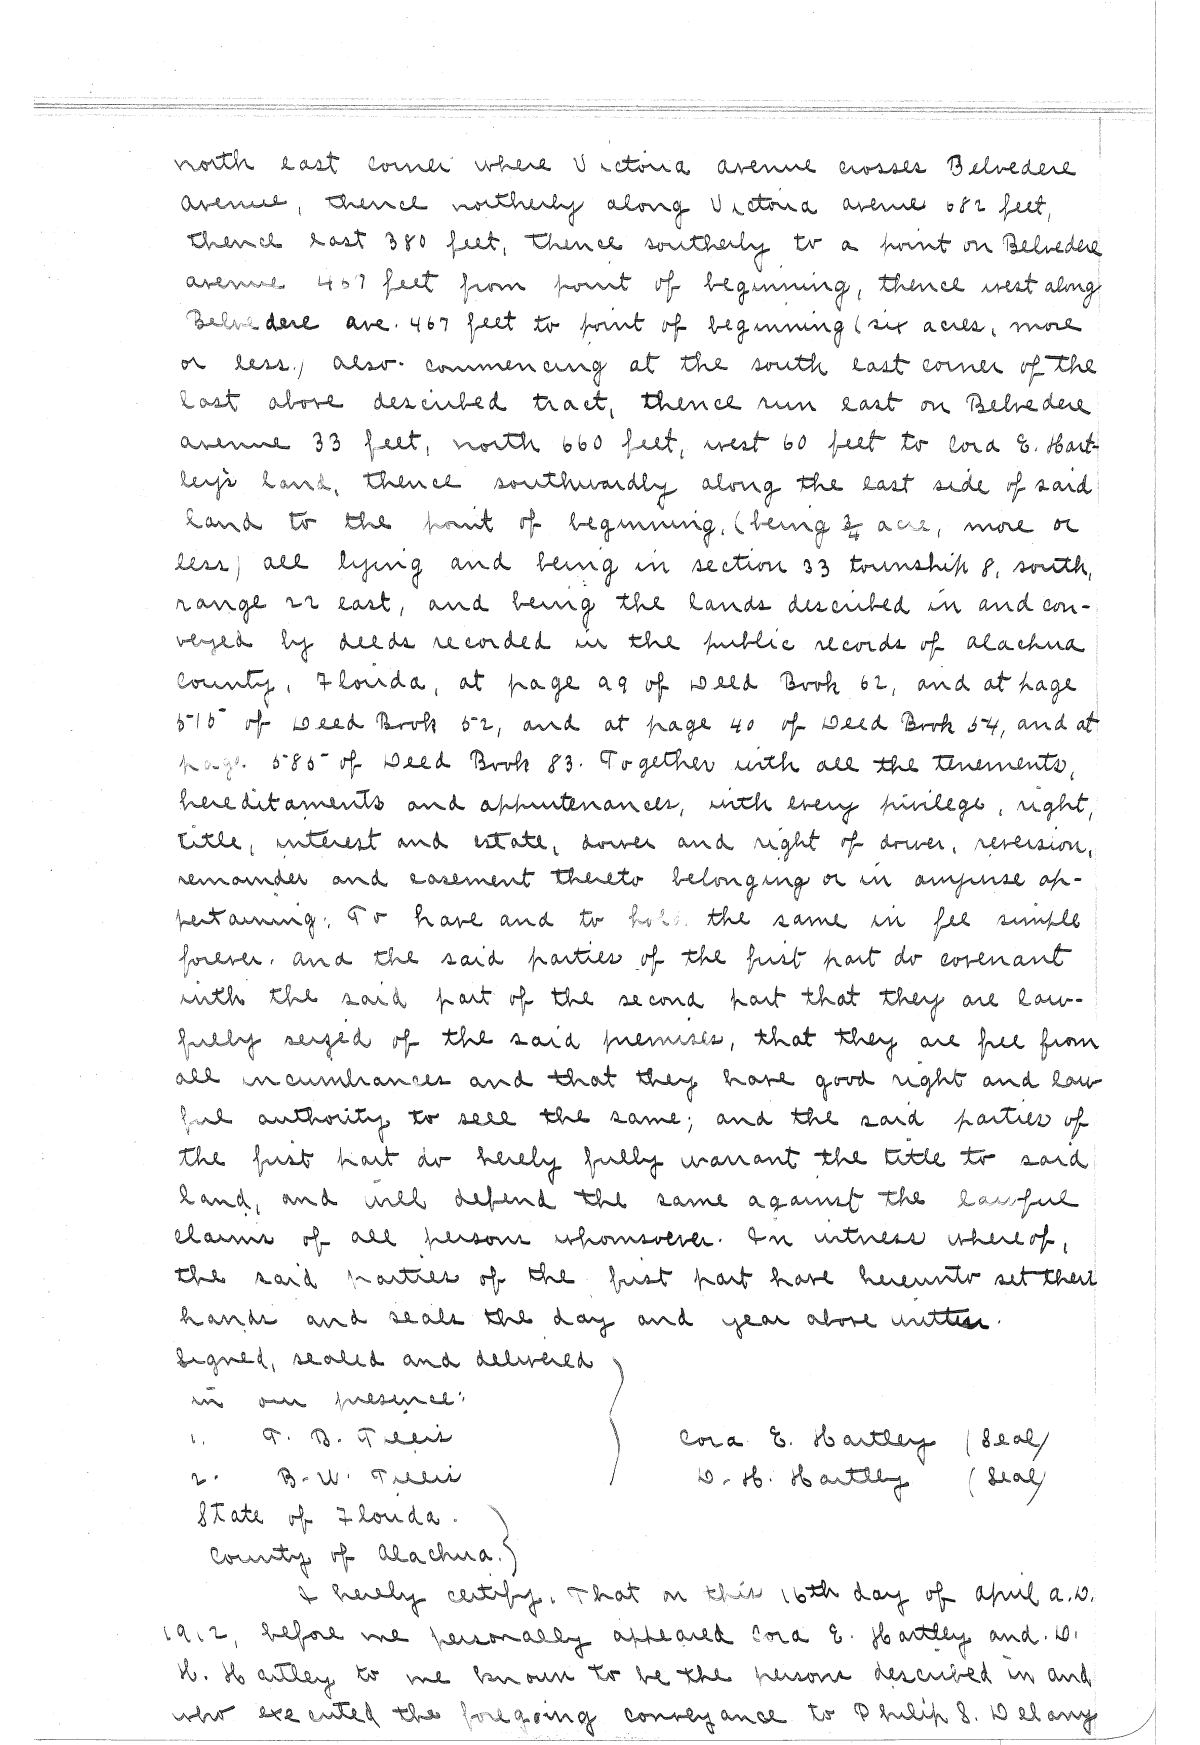 north east corner where Victoria avenue crosses Belvedere
avenue, thence northerly along Victoria avenue 682 feet,
thence east 380 feet, thence southerly to a point on Belvedere
avenue 467 feet from point of beginning, thence west along
Belvedere ave. 467 feet to point of beginning (six acres, more
or less.) also commencing at the south east corner of the
last above described tract, thence run east on Belvedere
avenue 33 feet, north 660 feet, west 60 feet to Cora E. Hart-
ley's land, thence southwardly along the east side of said
land to the point of beginning, (being 3/4 acre, more or
less) all lying and being in section 33 township 8, south,
range 22 east, and being the lands described in and con-
veyed by deeds recorded in the public records of Alachua
County, Florida, at page 99 of Deed Book 62, and at page
515 of Deed Book 52, and at page 40 of Deed Book 54, and at
page 585 of Deed Book 83. Together with all the tenements,
hereditaments and appurtenances, with every privilege, right,
title, interest and estate, dower and right of dower, reversion,
remainder and easement thereto belonging or in anywise ap-
pertaining: To have and to hold the same in fee simple
forever. and the said parties of the first part do covenant
with the said part of the second part that they are law-
fully seized of the said premises, that they are free from
all incumbrances and that they have good right and law
ful authority to sell the same; and the said parties of
the first part do hereby fully warrant the title to said
land, and will defend the same against the lawful
claims of all persons whomsoever. In witness whereof,
the said parties of the first part have hereunto set their
hands and seals the day and year above written.
Signed, sealed and delivered
in our presence:
1. T. B. Tillis Cora E. Hartley (Seal)
2. B. W. Tillis D. H. Hartley (Seal)
State of Florida.
County of Alachua.
I hereby certify, That on this 16th day of April A.D.
1912, before me personally appeared Cora E. Hartley and D.
H. Hartley to me known to be the persons described in and
who executed the foregoing conveyance to Philip S. Delany